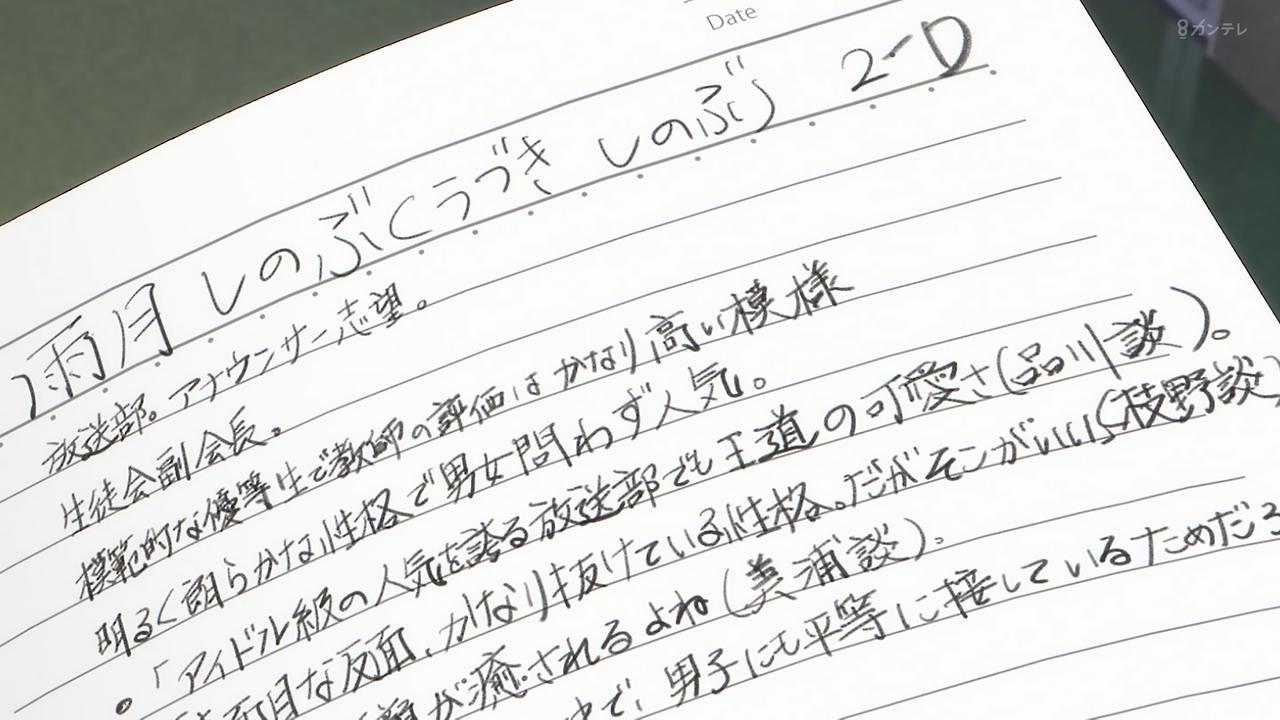 Date
8カンテレ
雨月 しのぶ(うづき しのぶ) 2-D
放送部。アナウンサー志望。
生徒会副会長。
模範的な優等生で教師の評価はかなり高い模様
明るく朗らかな性格で男女問わず人気。
・「アイドル級の人気を誇る放送部でも王道の可愛さ(品川談)。
面目な反面、かなり抜けている性格。だがそこがいい!(枝野談)
が癒されるよね(美浦談)。
中で、男子にも平等に接しているためだろ